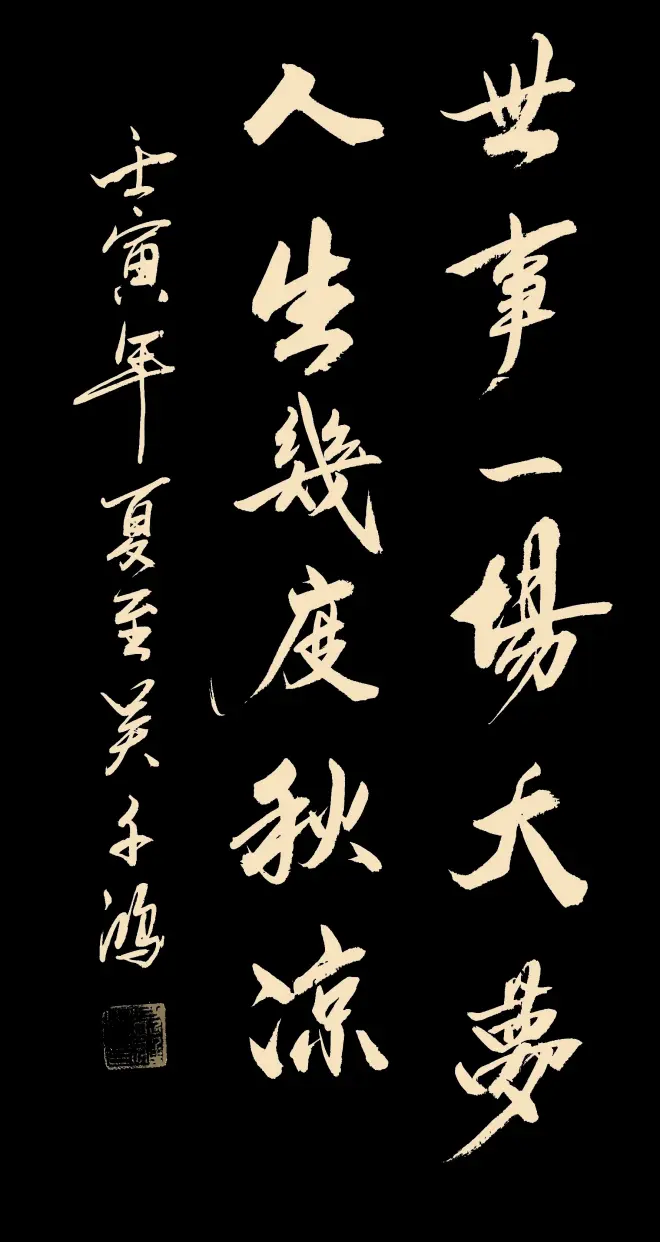 世事一場大夢
人生幾度秋涼
壬寅年夏至吴千鴻